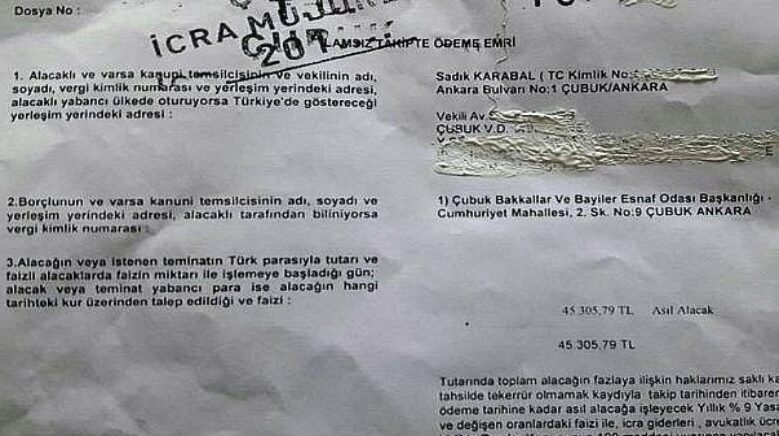 Dosya No :
İCRA MÜD
201
LAMSIZ TAKİPTE ÖDEME EMRİ
1. Alacaklı ve varsa kanuni temsilcisinin ve vekilinin adı,
soyadı, vergi kimlik numarası ve yerleşim yerindeki adresi,
alacaklı yabancı ülkede oturuyorsa Türkiye'de göstereceği
yerleşim yerindeki adresi :
Sadık KARABAL ( TC Kimlik No:
Ankara Bulvarı No:1 ÇUBUK/ANKARA
Vekili Av.
ÇUBUK V.D.
2.Borçlunun ve varsa kanuni temsilcisinin adı, soyadı ve
yerleşim yerindeki adresi, alacaklı tarafından biliniyorsa
vergi kimlik numarası :
1) Çubuk Bakkallar Ve Bayiler Esnaf Odası Başkanlığı -
Cumhuriyet Mahallesi, 2. Sk. No:9 ÇUBUK ANKARA
3.Alacağın veya istenen teminatın Türk parasıyla tutarı ve
faizli alacaklarda faizin miktarı ile işlemeye başladığı gün;
alacak veya teminat yabancı para ise alacağın hangi
tarihteki kur üzerinden talep edildiği ve faizi :
45.305,79 TL Asıl Alacak
45.305,79 TL
Tutarında toplam alacağın fazlaya ilişkin haklarımız saklı
tahsilde tekerrür olmamak kaydıyla takip tarihinden itibaren
ödeme tarihine kadar asıl alacağa işleyecek Yıllık % 9
ve değişen oranlardaki faizi ile, icra giderleri , avukatlık